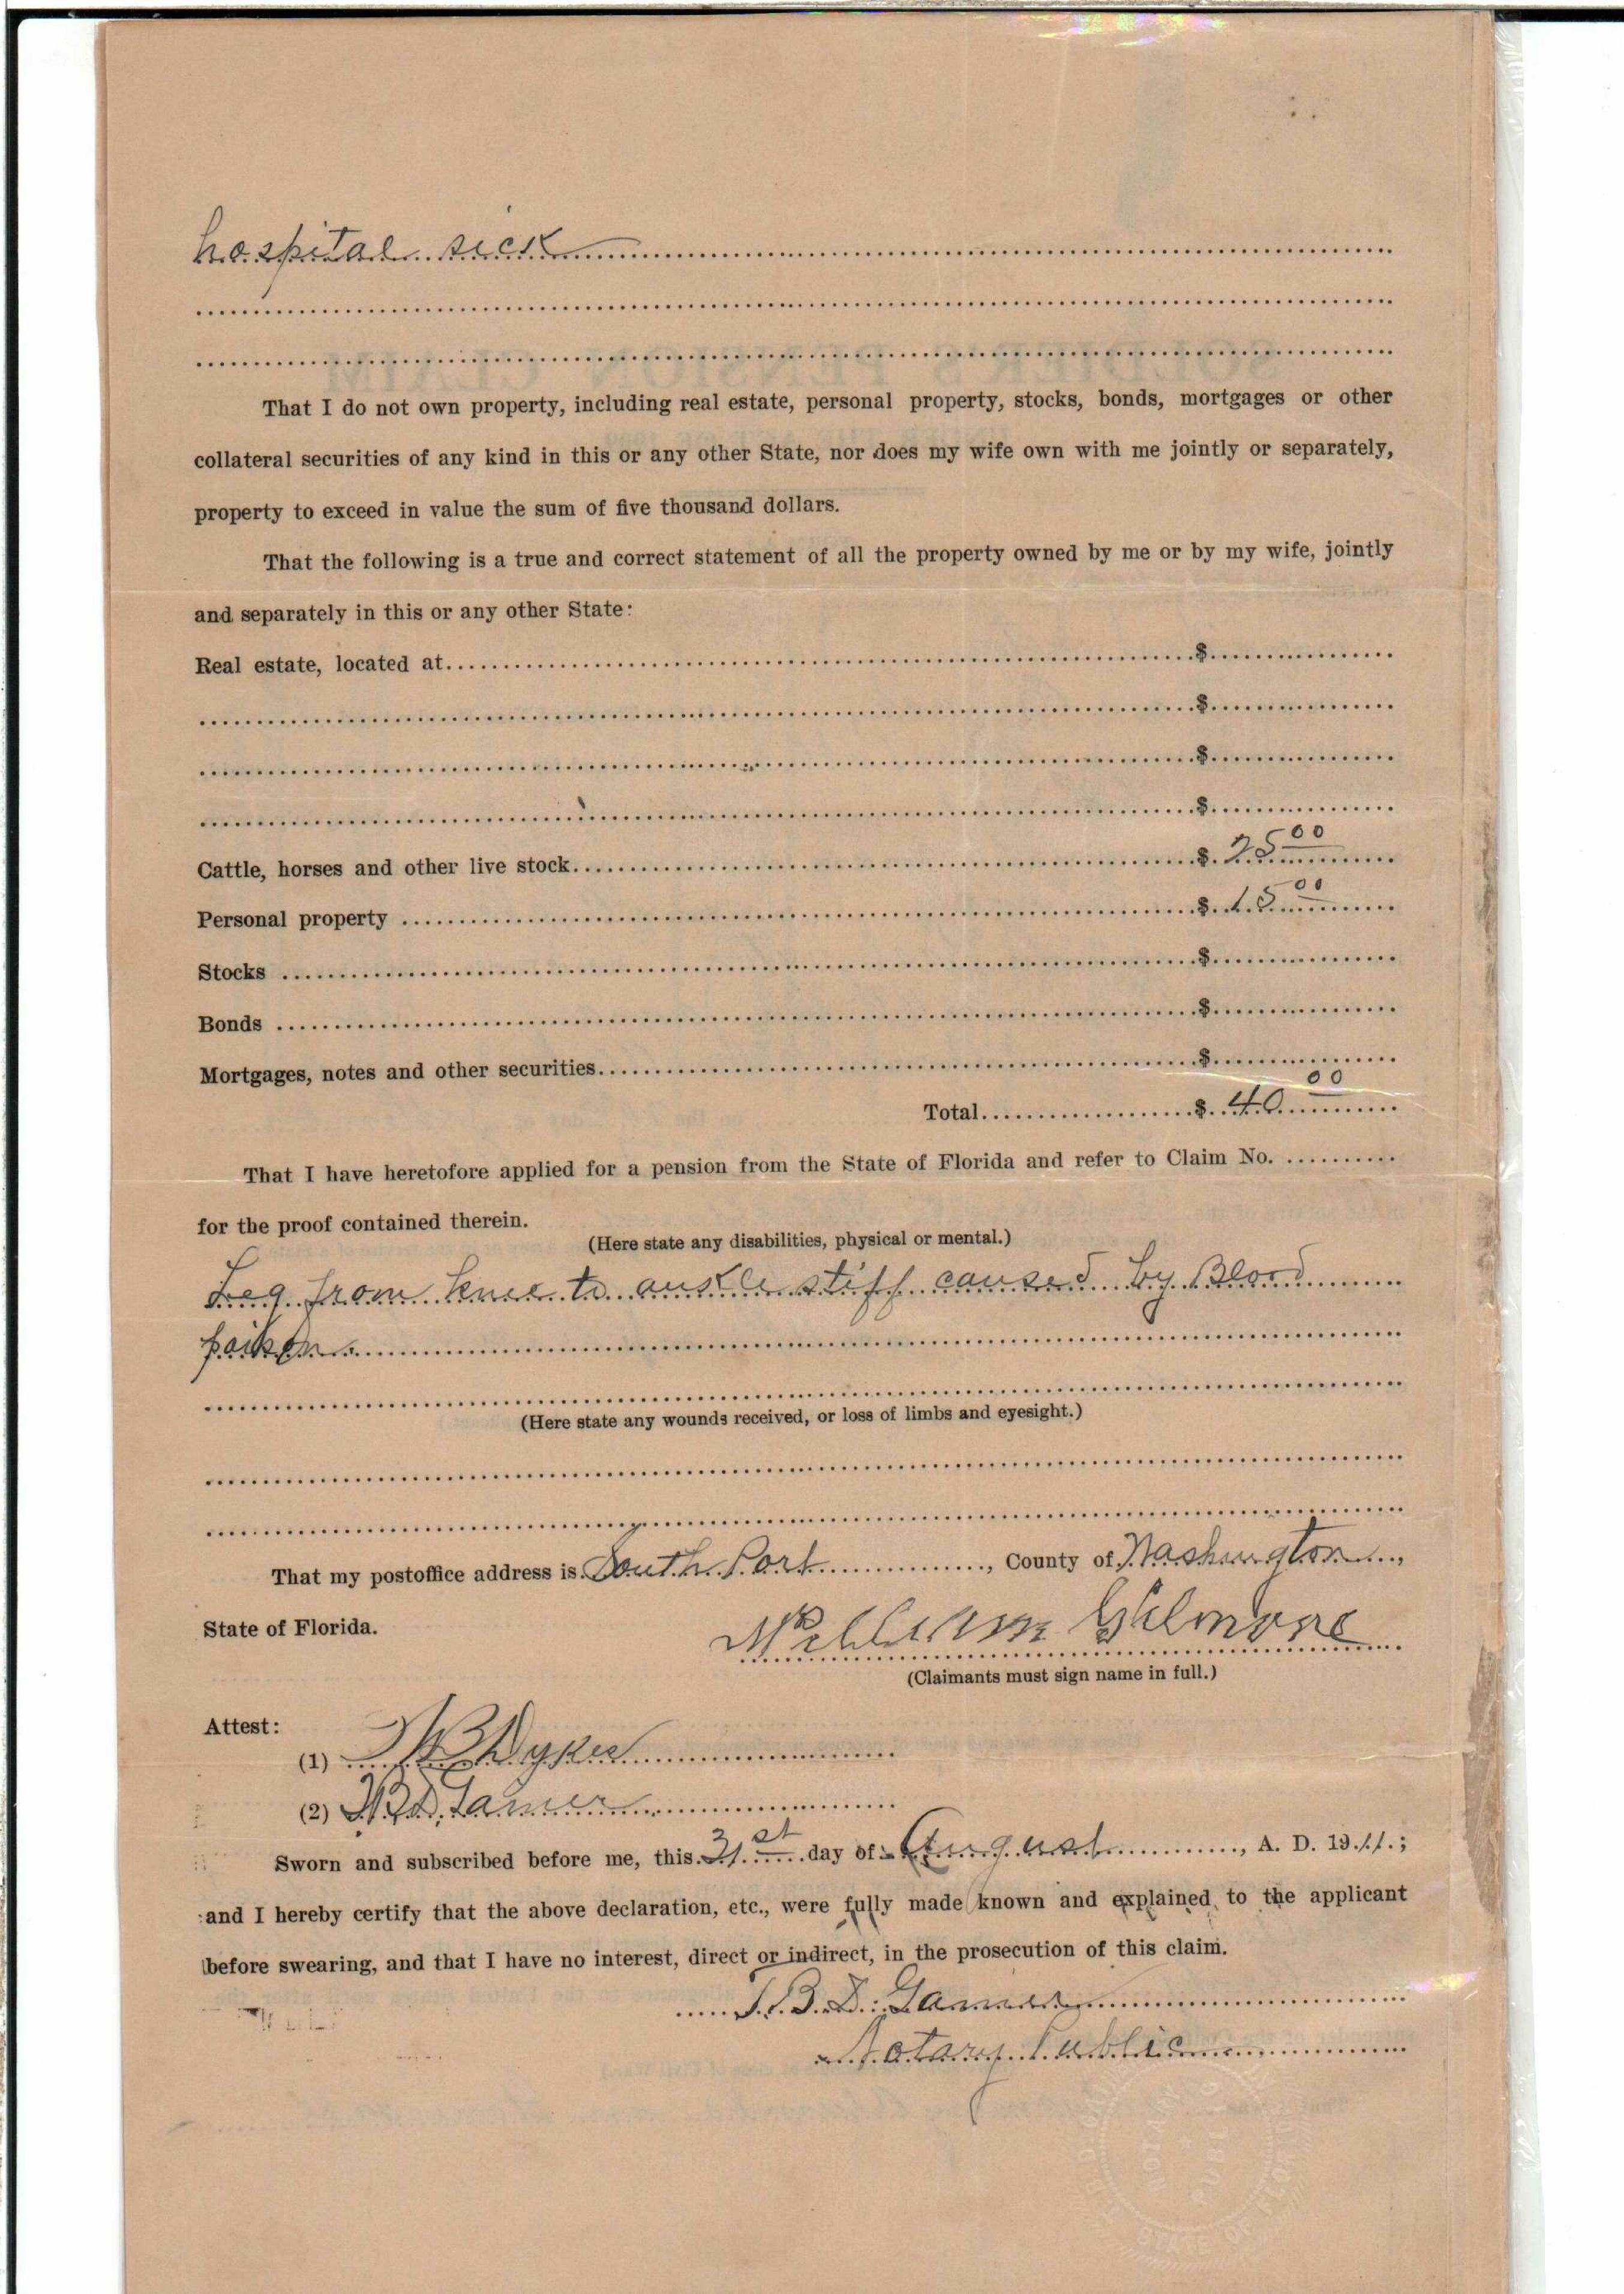 hospital sick
That I do not own property, including real estate, personal property, stocks, bonds, mortgages or other
collateral securities of any kind in this or any other State, nor does my wife own with me jointly or separately,
property to exceed in value the sum of five thousand dollars.
That the following is a true and correct statement of all the property owned by me or by my wife, jointly
and separately in this or any other State:
Real estate, located at $
$
$
$
Cattle, horses and other live stock $ 25 00
Personal property $ 15 00
Stocks $
Bonds $
Mortgages, notes and other securities $
Total $ 40 00
That I have heretofore applied for a pension from the State of Florida and refer to Claim No.
for the proof contained therein.
(Here state any disabilities, physical or mental.)
Leg from knee to anskle stiff caused by Blood
poison
(Here state any wounds received, or loss of limbs and eyesight.)
That my postoffice address is South Port, County of Washington,
State of Florida.
William Gilmore
(Claimants must sign name in full.)
Attest:
(1) Dykes
(2)
Sworn and subscribed before me, this 31st day of August, A. D. 1911;
and I hereby certify that the above declaration, etc., were fully made known and explained to the applicant
before swearing, and that I have no interest, direct or indirect, in the prosecution of this claim.
Notary Public